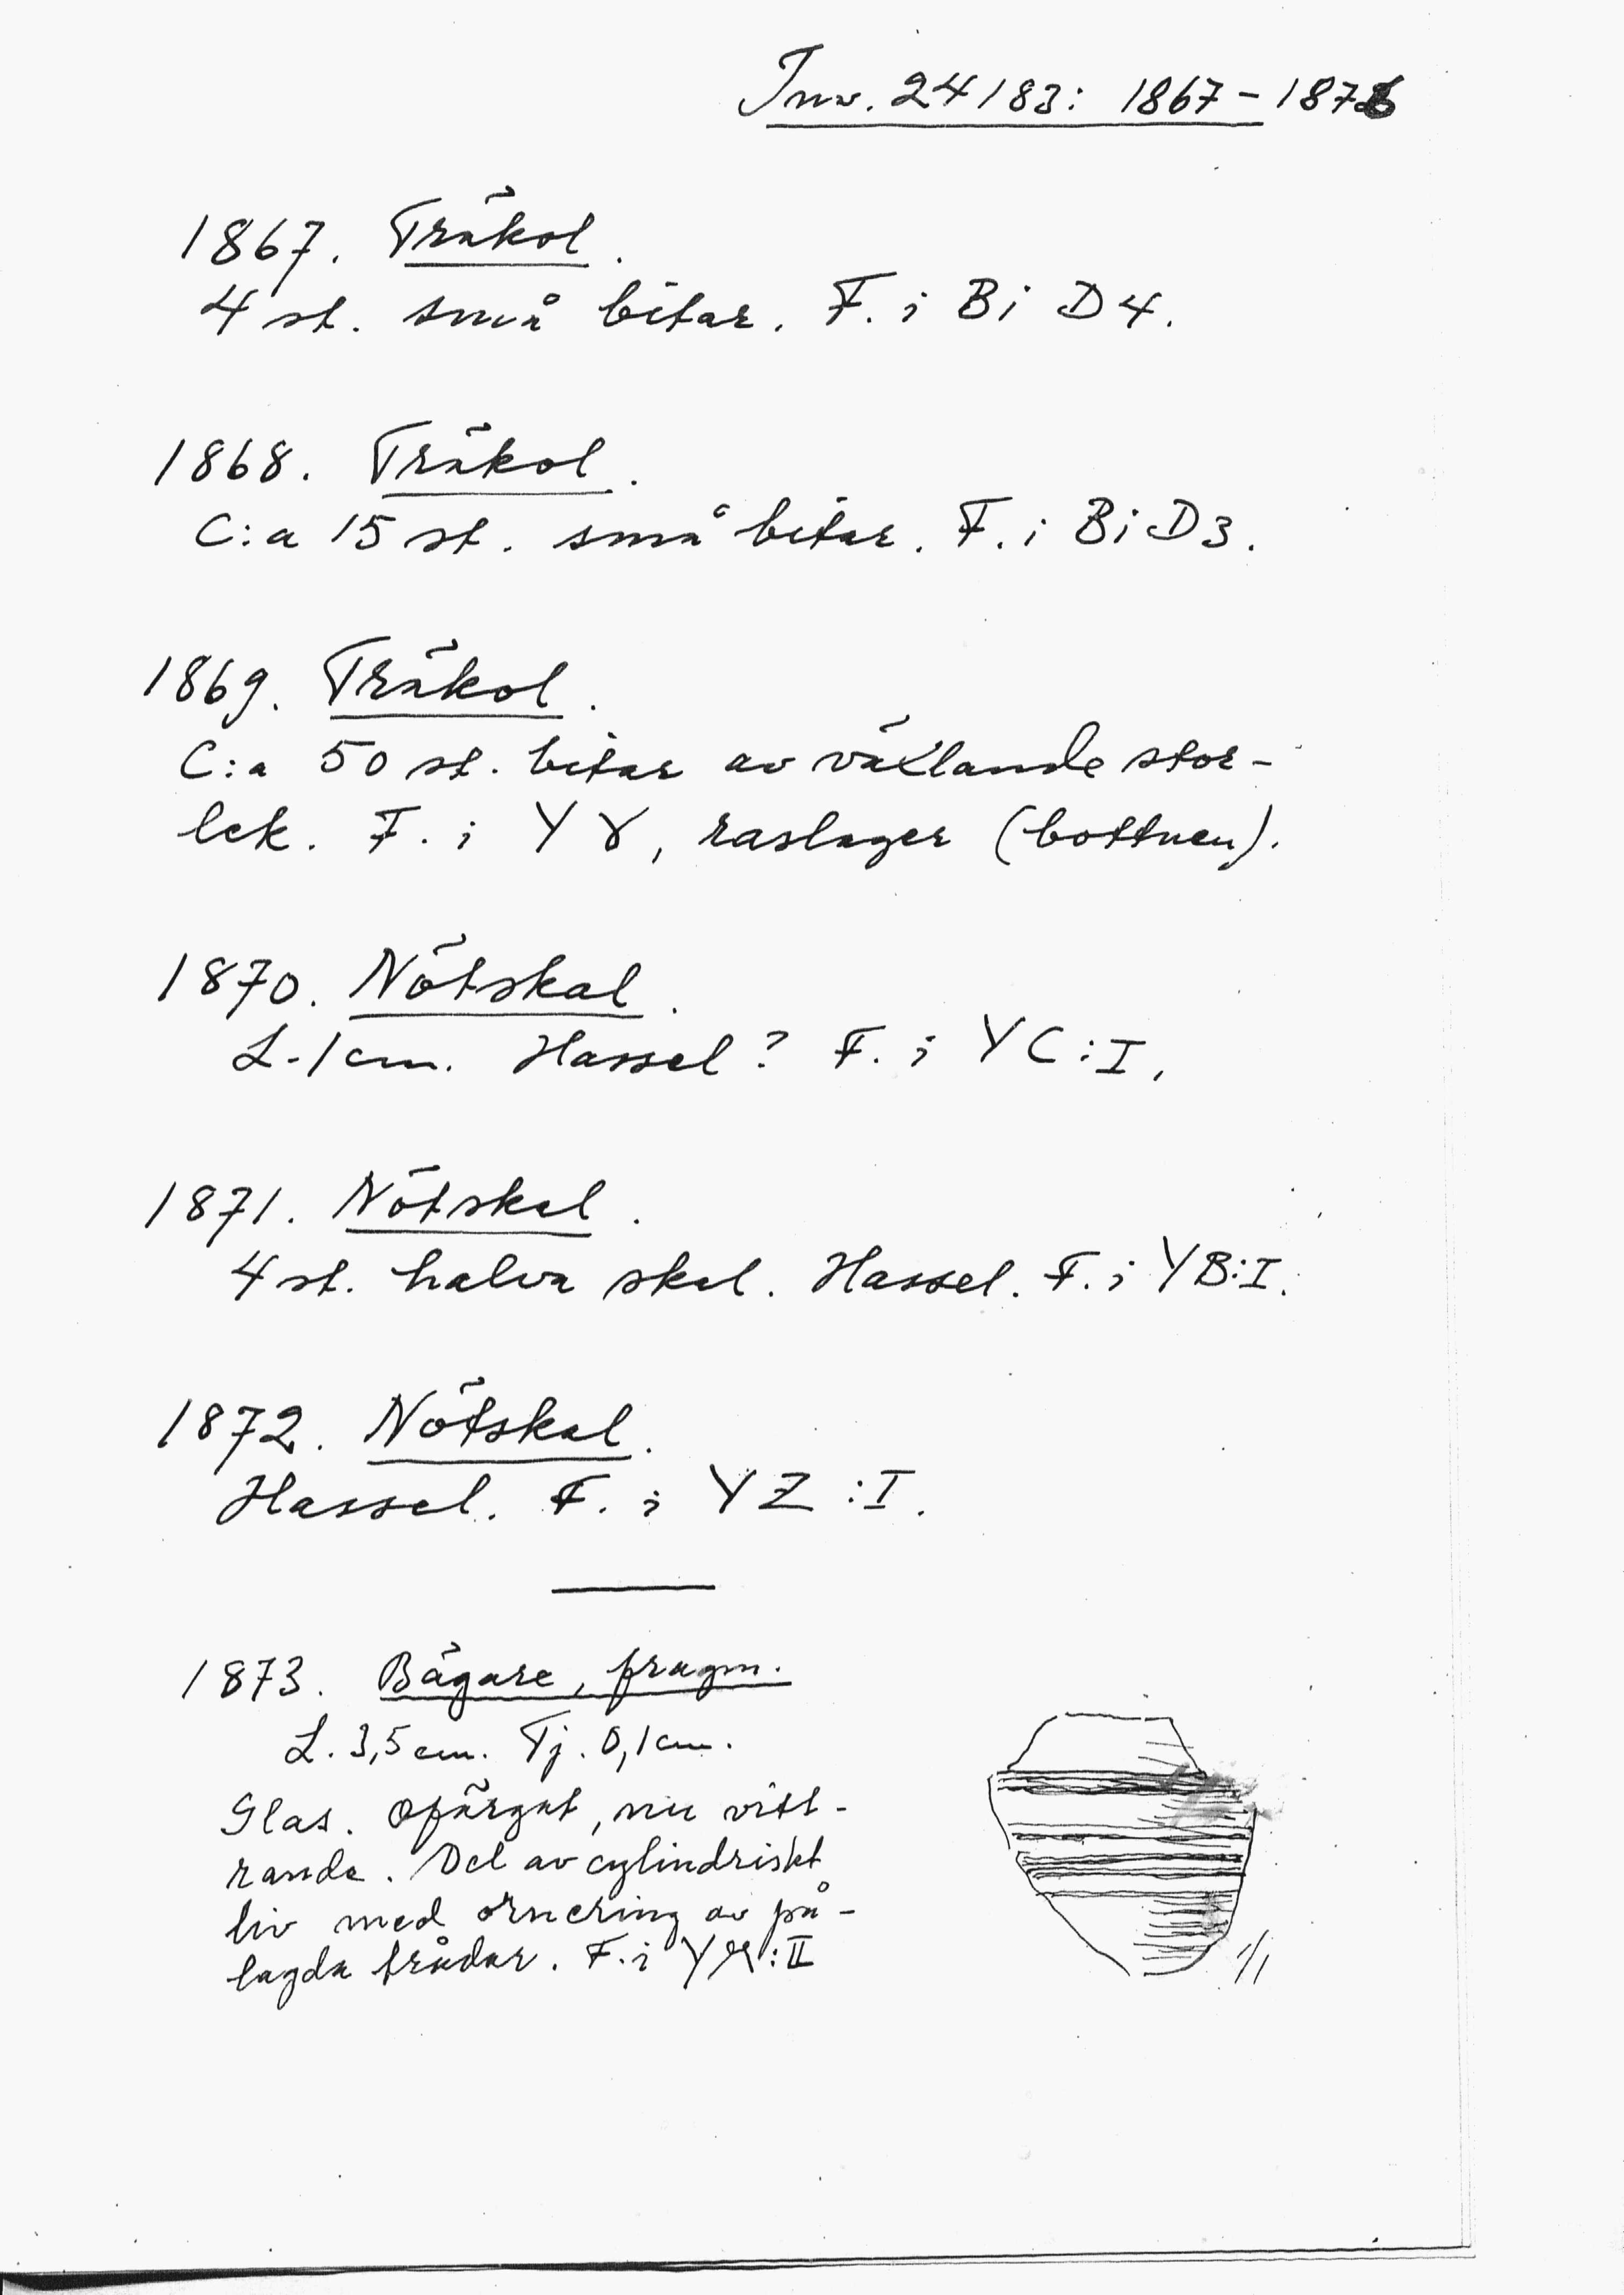 Inv. 24183: 1867-187
1867. Träkol.
4 st. små bitar. F. i Bi D4.
1868. Träkol.
C:a 15 st. små bitar. F. i Bi D3.
1869. Träkol.
C:a 50 st. bitar av växlande stor-
lek. F. i Y , raslager (bottnen).
1870. Nötskal.
L. 1 cm. Hassel? F. i YC:I.
1871. Nötskal.
4 st. halva skal. Hassel. F. i YB:I.
1872. Nötskal.
Hassel. F. i YZ:I.
1873. Bägare, fragm.
L. 3,5 cm. Tj. 0,1 cm.
Glas. Ofärgat, nu vitt-
rande. Del av cylindriskt
liv med ornering av på-
lagda trådar. F. i :II
1/1